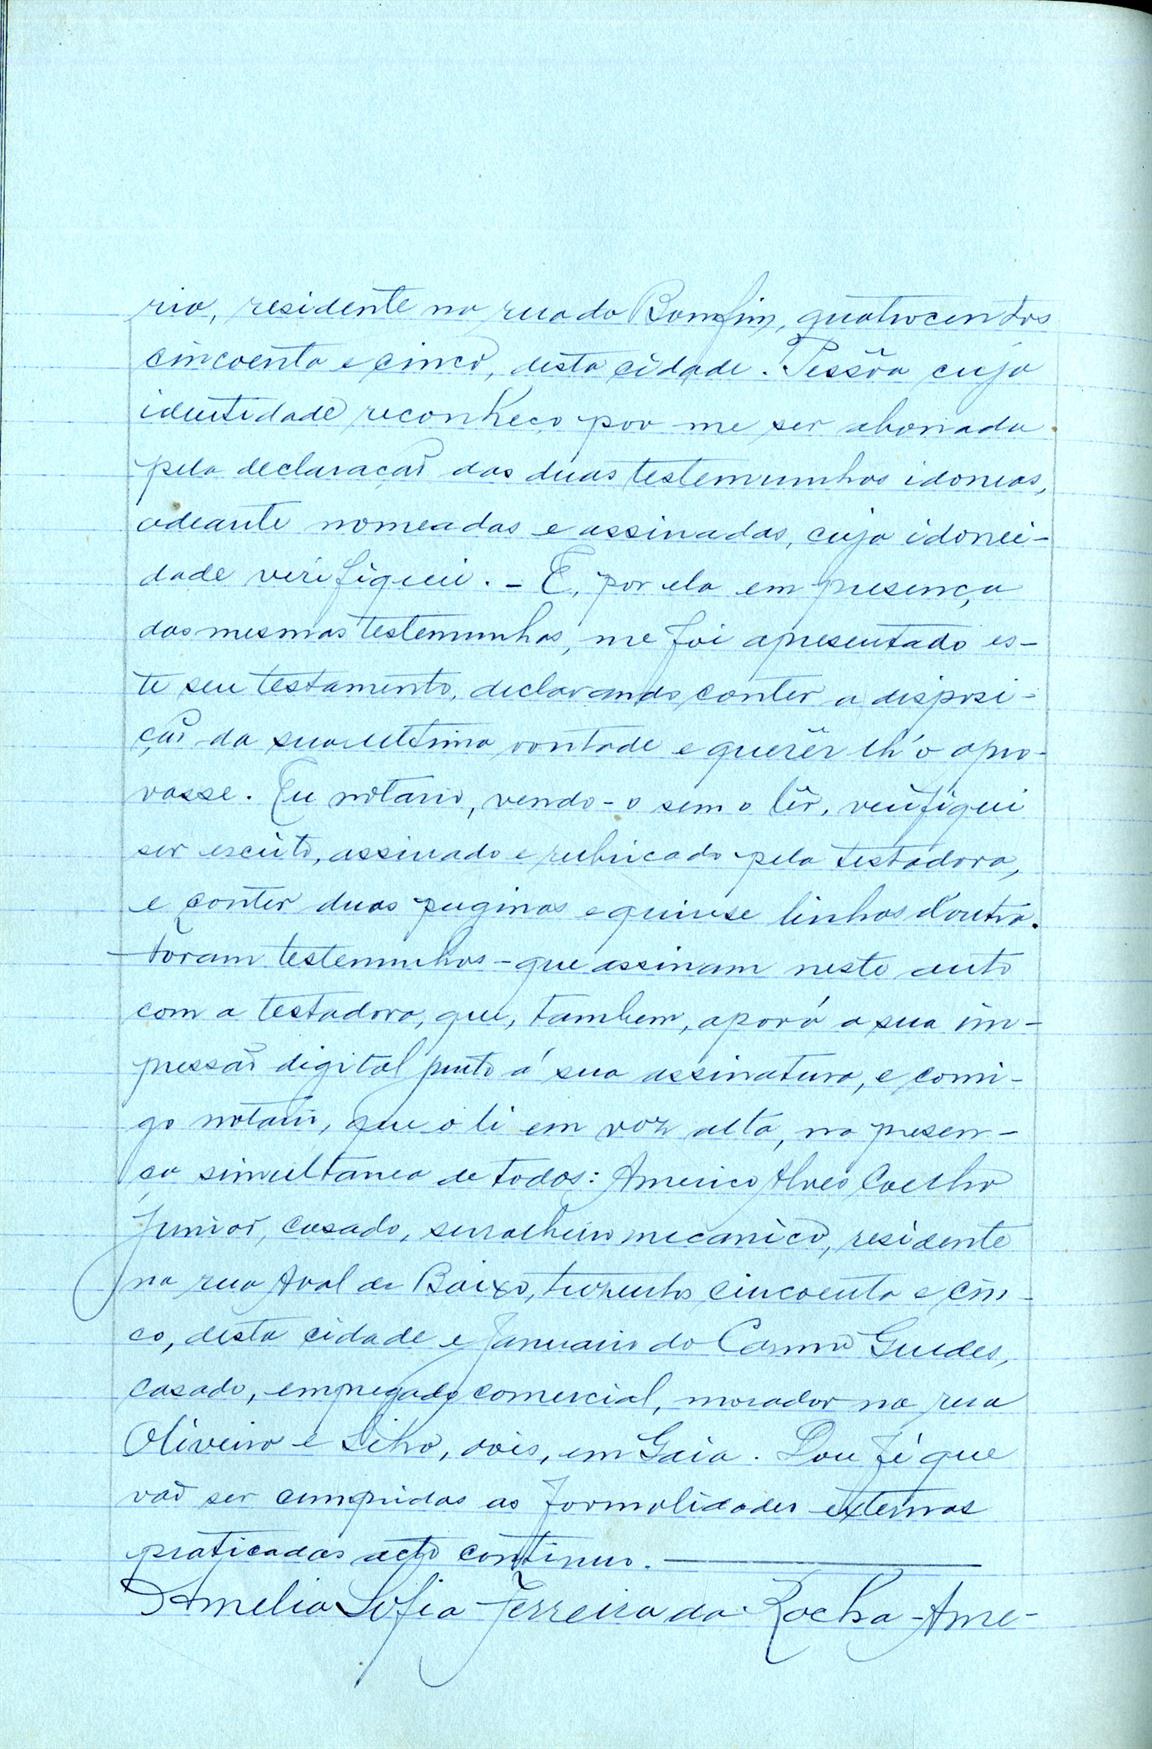 ria, residente na rua do Bomfim, quatrocentos
cincoenta e cinco, desta cidade. Pessôa cuja
identidade reconheço por me ser abonada
pela declaração das duas testemunhas idoneas,
adeante nomeadas e assinadas, cuja idonei-
dade verifiquei. - E, por ela em presença
das mesmas testemunhas, me foi apresentado es-
te seu testamento, declarando conter a disposi-
ção da sua ultima vontade e querêr lh'o apro-
vasse. Eu notario, vendo-o sem o lêr, verifiquei
ser escrito, assinado e rubricado pela testadora,
e conter duas paginas e quinse linhas d'outra.
Foram testemunhas - que assinam neste auto
com a testadora, que, tambem, aporá a sua im-
pressão digital junto á sua assinatura, e comi-
go notario, que o li em voz alta, na presen-
ça simultanea de todos: Americo Alves Coelho
Junior, casado, serralheiro mecanico, residente
na rua Aval de Baixo, trezentos cincoenta e cin-
co, desta cidade e Januario do Carmo Guedes,
casado, empregado comercial, morador na rua
Oliveira e Silva, dois, em Gaia. Dou fé que
vão ser cumpridas as formalidades externas
praticadas acto continuo.
Amelia Sofia Ferreira da Rocha - Ame-